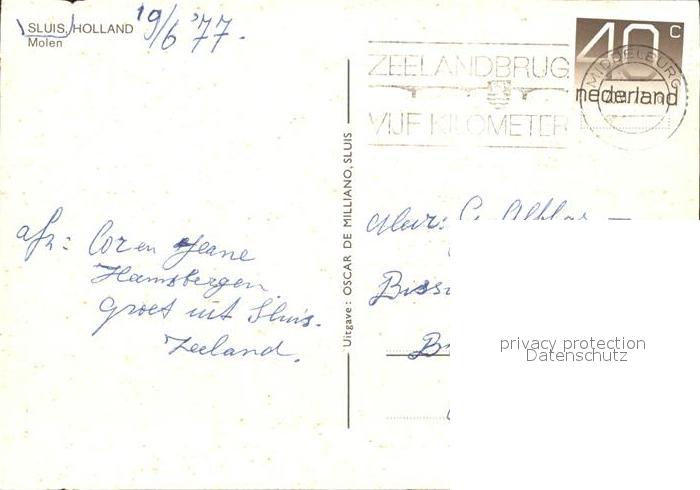 SLUIS, HOLLAND
Molen
19/6 '77.
ZEELANDBRUG
VIJF KILOMETER
MIDDELBURG
40 c
nederland
Uitgave: OSCAR DE MILLIANO, SLUIS
afz: Cor en Jeane
Hamsbergen
groet uit Sluis.
Zeeland.
privacy protection
Datenschutz